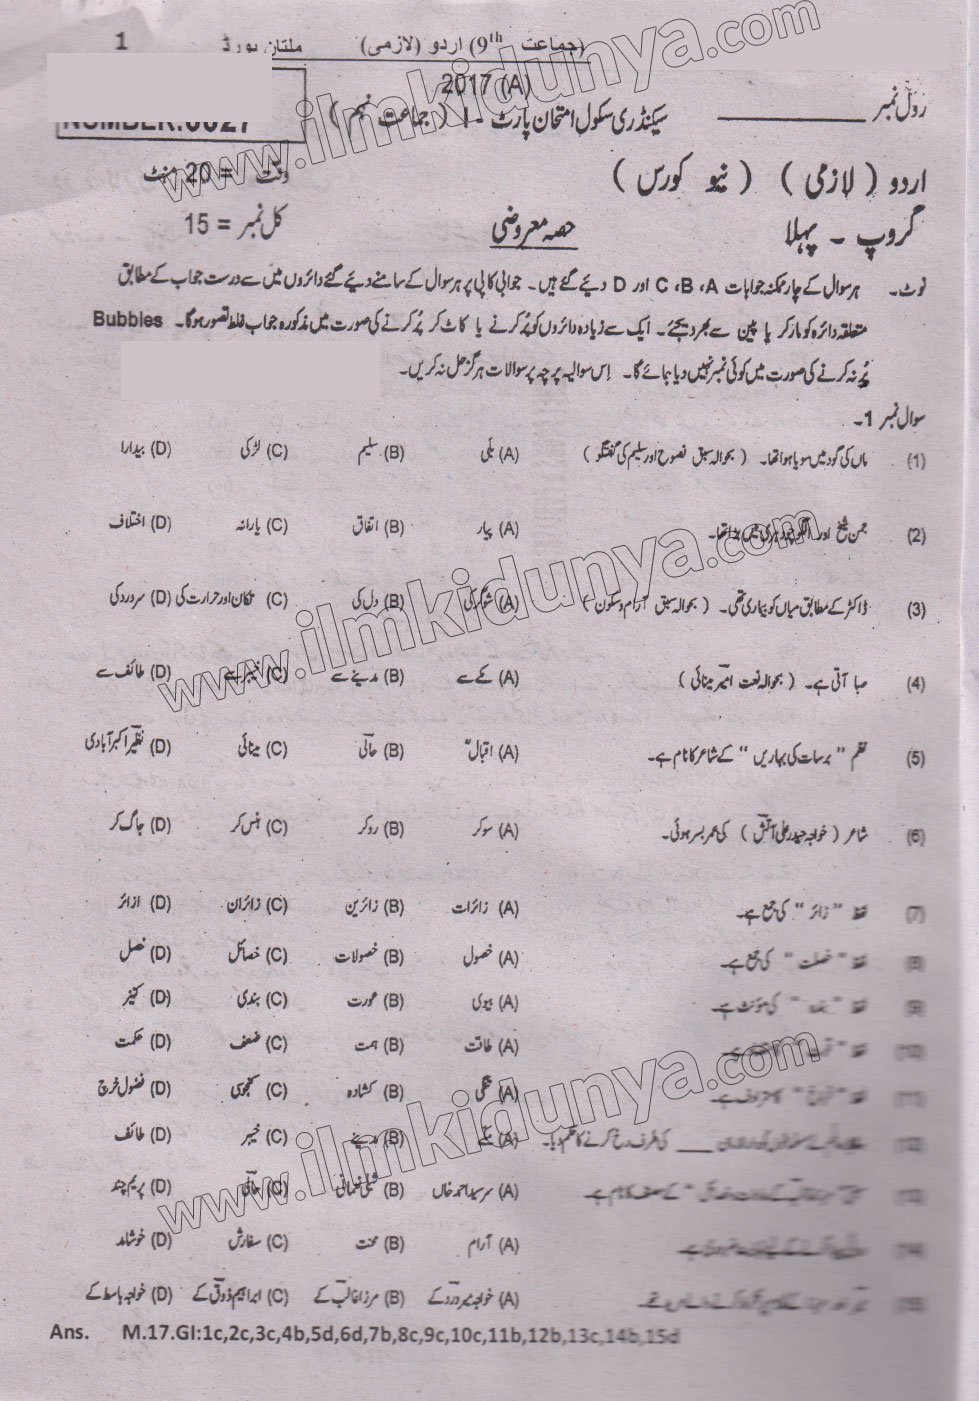 (جماعت 9th) اردو (لازمی) ملتان بورڈ 1
2017 (A)
رول نمبر ـــــــــــــــ سیکنڈری سکول امتحان پارٹ - I ( جماعت نہم )
اردو ( لازمی ) ( نیو کورس ) وقت = 20 منٹ
گروپ ۔ پہلا حصہ معروضی کل نمبر = 15
نوٹ۔ ہر سوال کے چار ممکنہ جوابات A ،B ،C اور D دیئے گئے ہیں۔ جوابی کاپی پر ہر سوال کے سامنے دیئے گئے دائروں میں سے درست جواب کے مطابق
متعلقہ دائرہ کو مارکر یا پین سے بھر دیجئے۔ ایک سے زیادہ دائروں کو پُر کرنے یا کاٹ کر پُر کرنے کی صورت میں مذکورہ جواب غلط تصور ہوگا۔ Bubbles
پُر نہ کرنے کی صورت میں کوئی نمبر نہیں دیا جائے گا۔ اِس سوالیہ پرچہ پر سوالات ہرگز حل نہ کریں۔
سوال نمبر 1۔
(1) ماں کی گود میں سویا ہوا تھا۔ ( بحوالہ سبق نصوح اور سلیم کی گفتگو ) (A) بلی (B) سلیم (C) لڑکی (D) بیدارا
(2) جمن شیخ اور الگو چودھری میں بڑا تھا۔ (A) پیار (B) اتفاق (C) یارانہ (D) اختلاف
(3) ڈاکٹر کے مطابق میاں کو بیماری تھی۔ ( بحوالہ سبق آرام و سکون ) (A) شوگر کی (B) دل کی (C) تکان اور حرارت کی (D) سر درد کی
(4) صبا آتی ہے۔ ( بحوالہ نعت امیر مینائی ) (A) مکے سے (B) مدینے سے (C) خیبر سے (D) طائف سے
(5) نظم " برسات کی بہاریں " کے شاعر کا نام ہے۔ (A) اقبال (B) حالی (C) مینائی (D) نظیر اکبر آبادی
(6) شاعر ( خواجہ حیدر علی آتش ) کی عمر بسر ہوئی۔ (A) سو کر (B) رو کر (C) ہنس کر (D) جاگ کر
(7) لفظ " زائر " کی جمع ہے۔ (A) زائرات (B) زائرین (C) زائران (D) ازائر
(8) لفظ " خصلت " کی جمع ہے۔ (A) خصول (B) خصولات (C) خصائل (D) خصل
(9) لفظ " بندہ " کی مؤنث ہے۔ (A) بیوی (B) عورت (C) بندی (D) کنیز
(10) لفظ (A) طاقت (B) ہمت (C) ضعف (D) حکمت
(11) لفظ کا مترادف ہے۔ (A) تنگی (B) کشادہ (C) کنجوسی (D) فضول خرچ
(12) ____ کی طرف رخ کرنے کا حکم دیا۔ (A) مکے (B) مدینے (C) خیبر (D) طائف
(13) کے مصنف کا نام ہے۔ (A) سرسید احمد خاں (B) شبلی نعمانی (C) حالی (D) پریم چند
(14) (A) آرام (B) محنت (C) سفارش (D) خوشامد
(15) (A) خواجہ میر درد کے (B) مرزا غالب کے (C) ابراہیم ذوق کے (D) خواجہ باسط کے
Ans. M.17.GI:1c,2c,3c,4b,5d,6d,7b,8c,9c,10c,11b,12b,13c,14b,15d
www.ilmkidunya.com
www.ilmkidunya.com
www.ilmkidunya.com